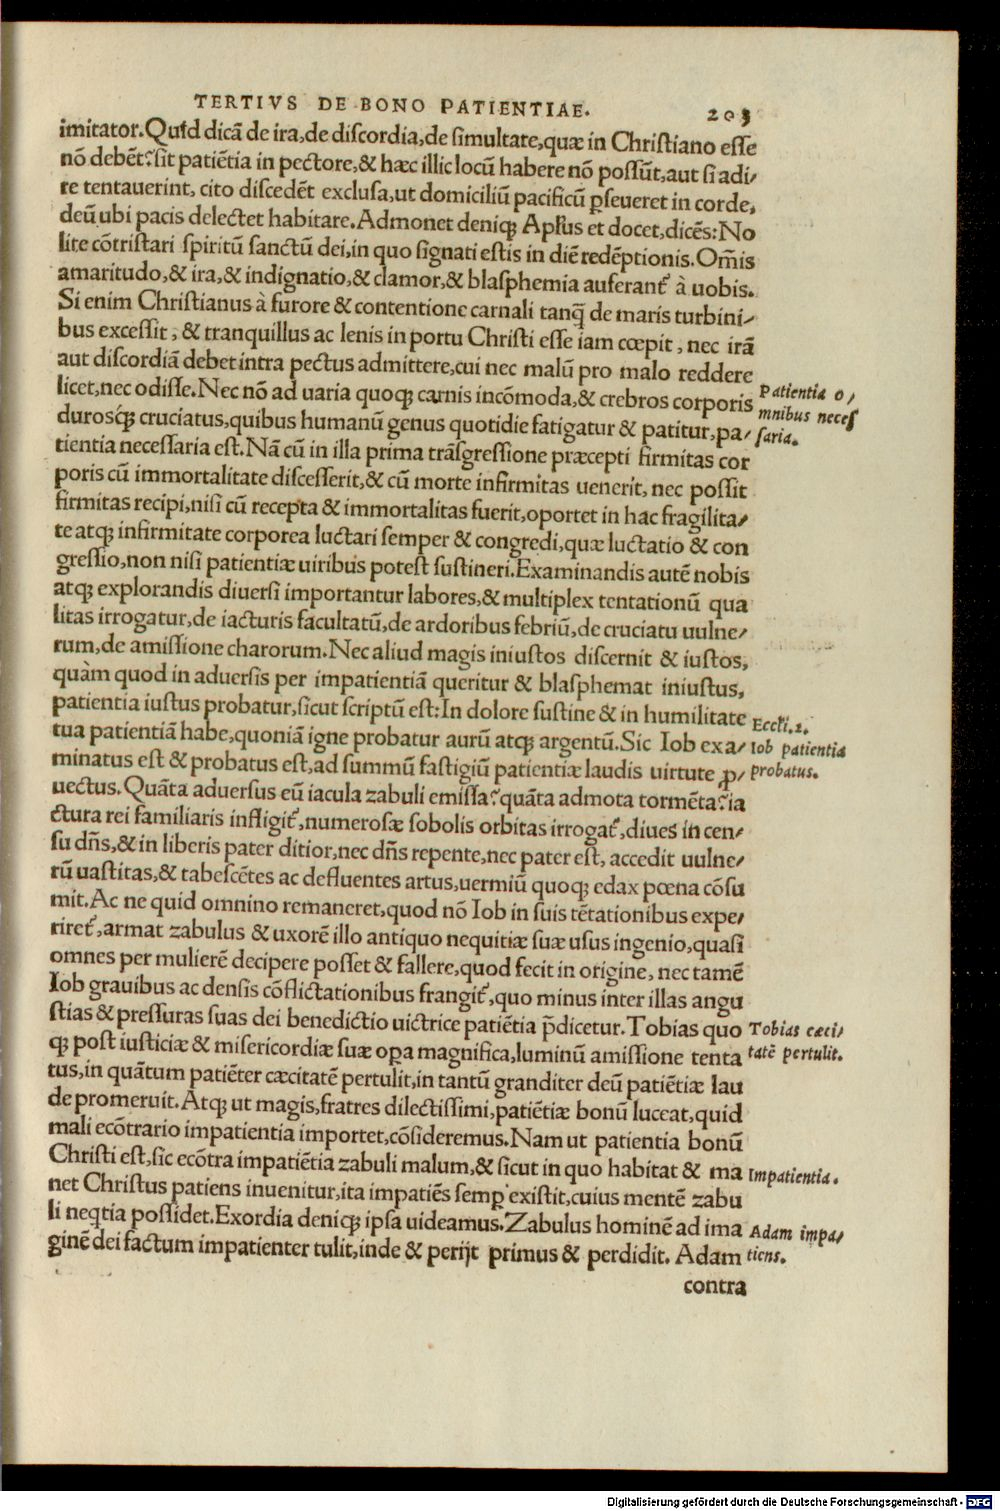 TERTIVS DE BONO PATIENTIAE. 203
imitator. Quid dicā de ira, de diſcordia, de ſimultate, quæ in Chriſtiano eſſe
nō debēt? ſit patiētia in pectore, & hæc illic locū habere nō poſſūt, aut ſi adi/
re tentauerint, cito diſcedēt excluſa, ut domiciliū pacificū ꝑſeueret in corde,
deū ubi pacis delectet habitare. Admonet deniqꝫ Apl'us et docet, dicēs: No
lite cōtriſtari ſpiritū ſanctū dei, in quo ſignati eſtis in diē redēptionis. Om̄is
amaritudo, & ira, & indignatio, & clamor, & blaſphemia auferant᷑ à uobis.
Si enim Chriſtianus à furore & contentione carnali tanq̄ de maris turbini/
bus exceſſit, & tranquillus ac lenis in portu Chriſti eſſe iam cœpit, nec irā
aut diſcordiā debet intra pectus admittere, cui nec malū pro malo reddere
licet, nec odiſſe. Nec nō ad uaria quoqꝫ carnis incōmoda, & crebros corporis
Patientia o/
mnibus neceſ
ſaria.
duroſq́ꝫ cruciatus, quibus humanū genus quotidie fatigatur & patitur, pa/
tientia neceſſaria eſt. Nā cū in illa prima trāſgreſſione præcepti firmitas cor
poris cū immortalitate diſceſſerit, & cū morte infirmitas uenerit, nec poſſit
firmitas recipi, niſi cū recepta & immortalitas fuerit, oportet in hac fragilita/
te atqꝫ infirmitate corporea luctari ſemper & congredi, quæ luctatio & con
greſſio, non niſi patientiæ uiribus poteſt ſuſtineri. Examinandis autē nobis
atqꝫ explorandis diuerſi importantur labores, & multiplex tentationū qua
litas irrogatur, de iacturis facultatū, de ardoribus febriū, de cruciatu uulne/
rum, de amiſſione charorum. Nec aliud magis iniuſtos diſcernit & iuſtos,
quàm quod in aduerſis per impatientiā queritur & blaſphemat iniuſtus,
patientia iuſtus probatur, ſicut ſcriptū eſt: In dolore ſuſtine & in humilitate
Eccli. 2.
tua patientiā habe, quoniā igne probatur aurū atqꝫ argentū. Sic Iob exa/
Iob patientia
probatus.
minatus eſt & probatus eſt, ad ſummū faſtigiū patientiæ laudis uirtute ꝓ/
uectus. Quāta aduerſus eū iacula zabuli emiſſa? quāta admota tormēta? ia
ctura rei familiaris infligit᷑, numeroſæ ſobolis orbitas irrogat᷑, diues in cen/
ſu dn̄s, & in liberis pater ditior, nec dn̄s repente, nec pater eſt, accedit uulne/
rū uaſtitas, & tabeſcētes ac defluentes artus, uermiū quoqꝫ edax pœna cōſu
mit. Ac ne quid omnino remaneret, quod nō Iob in ſuis tētationibus expe/
riret᷑, armat zabulus & uxorē illo antiquo nequitiæ ſuæ uſus ingenio, quaſi
omnes per mulierē decipere poſſet & fallere, quod fecit in origine, nec tamē
Iob grauibus ac denſis cōflictationibus frangit᷑, quo minus inter illas angu
ſtias & preſſuras ſuas dei benedictio uictrice patiētia p̄dicetur. Tobias quo
Tobias cæci/
tatē pertulit.
qꝫ poſt iuſticiæ & miſericordiæ ſuæ oꝑa magnifica, luminū amiſſione tenta
tus, in quātum patiēter cæcitatē pertulit, in tantū granditer deū patiētiæ lau
de promeruit. Atqꝫ ut magis, fratres dilectiſſimi, patiētiæ bonū luceat, quid
mali ecōtrario impatientia importet, cōſideremus. Nam ut patientia bonū
Chriſti eſt, ſic ecōtra impatiētia zabuli malum, & ſicut in quo habitat & ma
Impatientia.
net Chriſtus patiens inuenitur, ita impatiēs ſemꝑ exiſtit, cuius mentē zabu
li neq̄tia poſſidet. Exordia deniqꝫ ipſa uideamus. Zabulus hominē ad ima
Adam impa/
tiens.
ginē dei factum impatienter tulit, inde & perijt primus & perdidit. Adam
contra
Digitalisierung gefördert durch die Deutsche Forschungsgemeinschaft - DFG